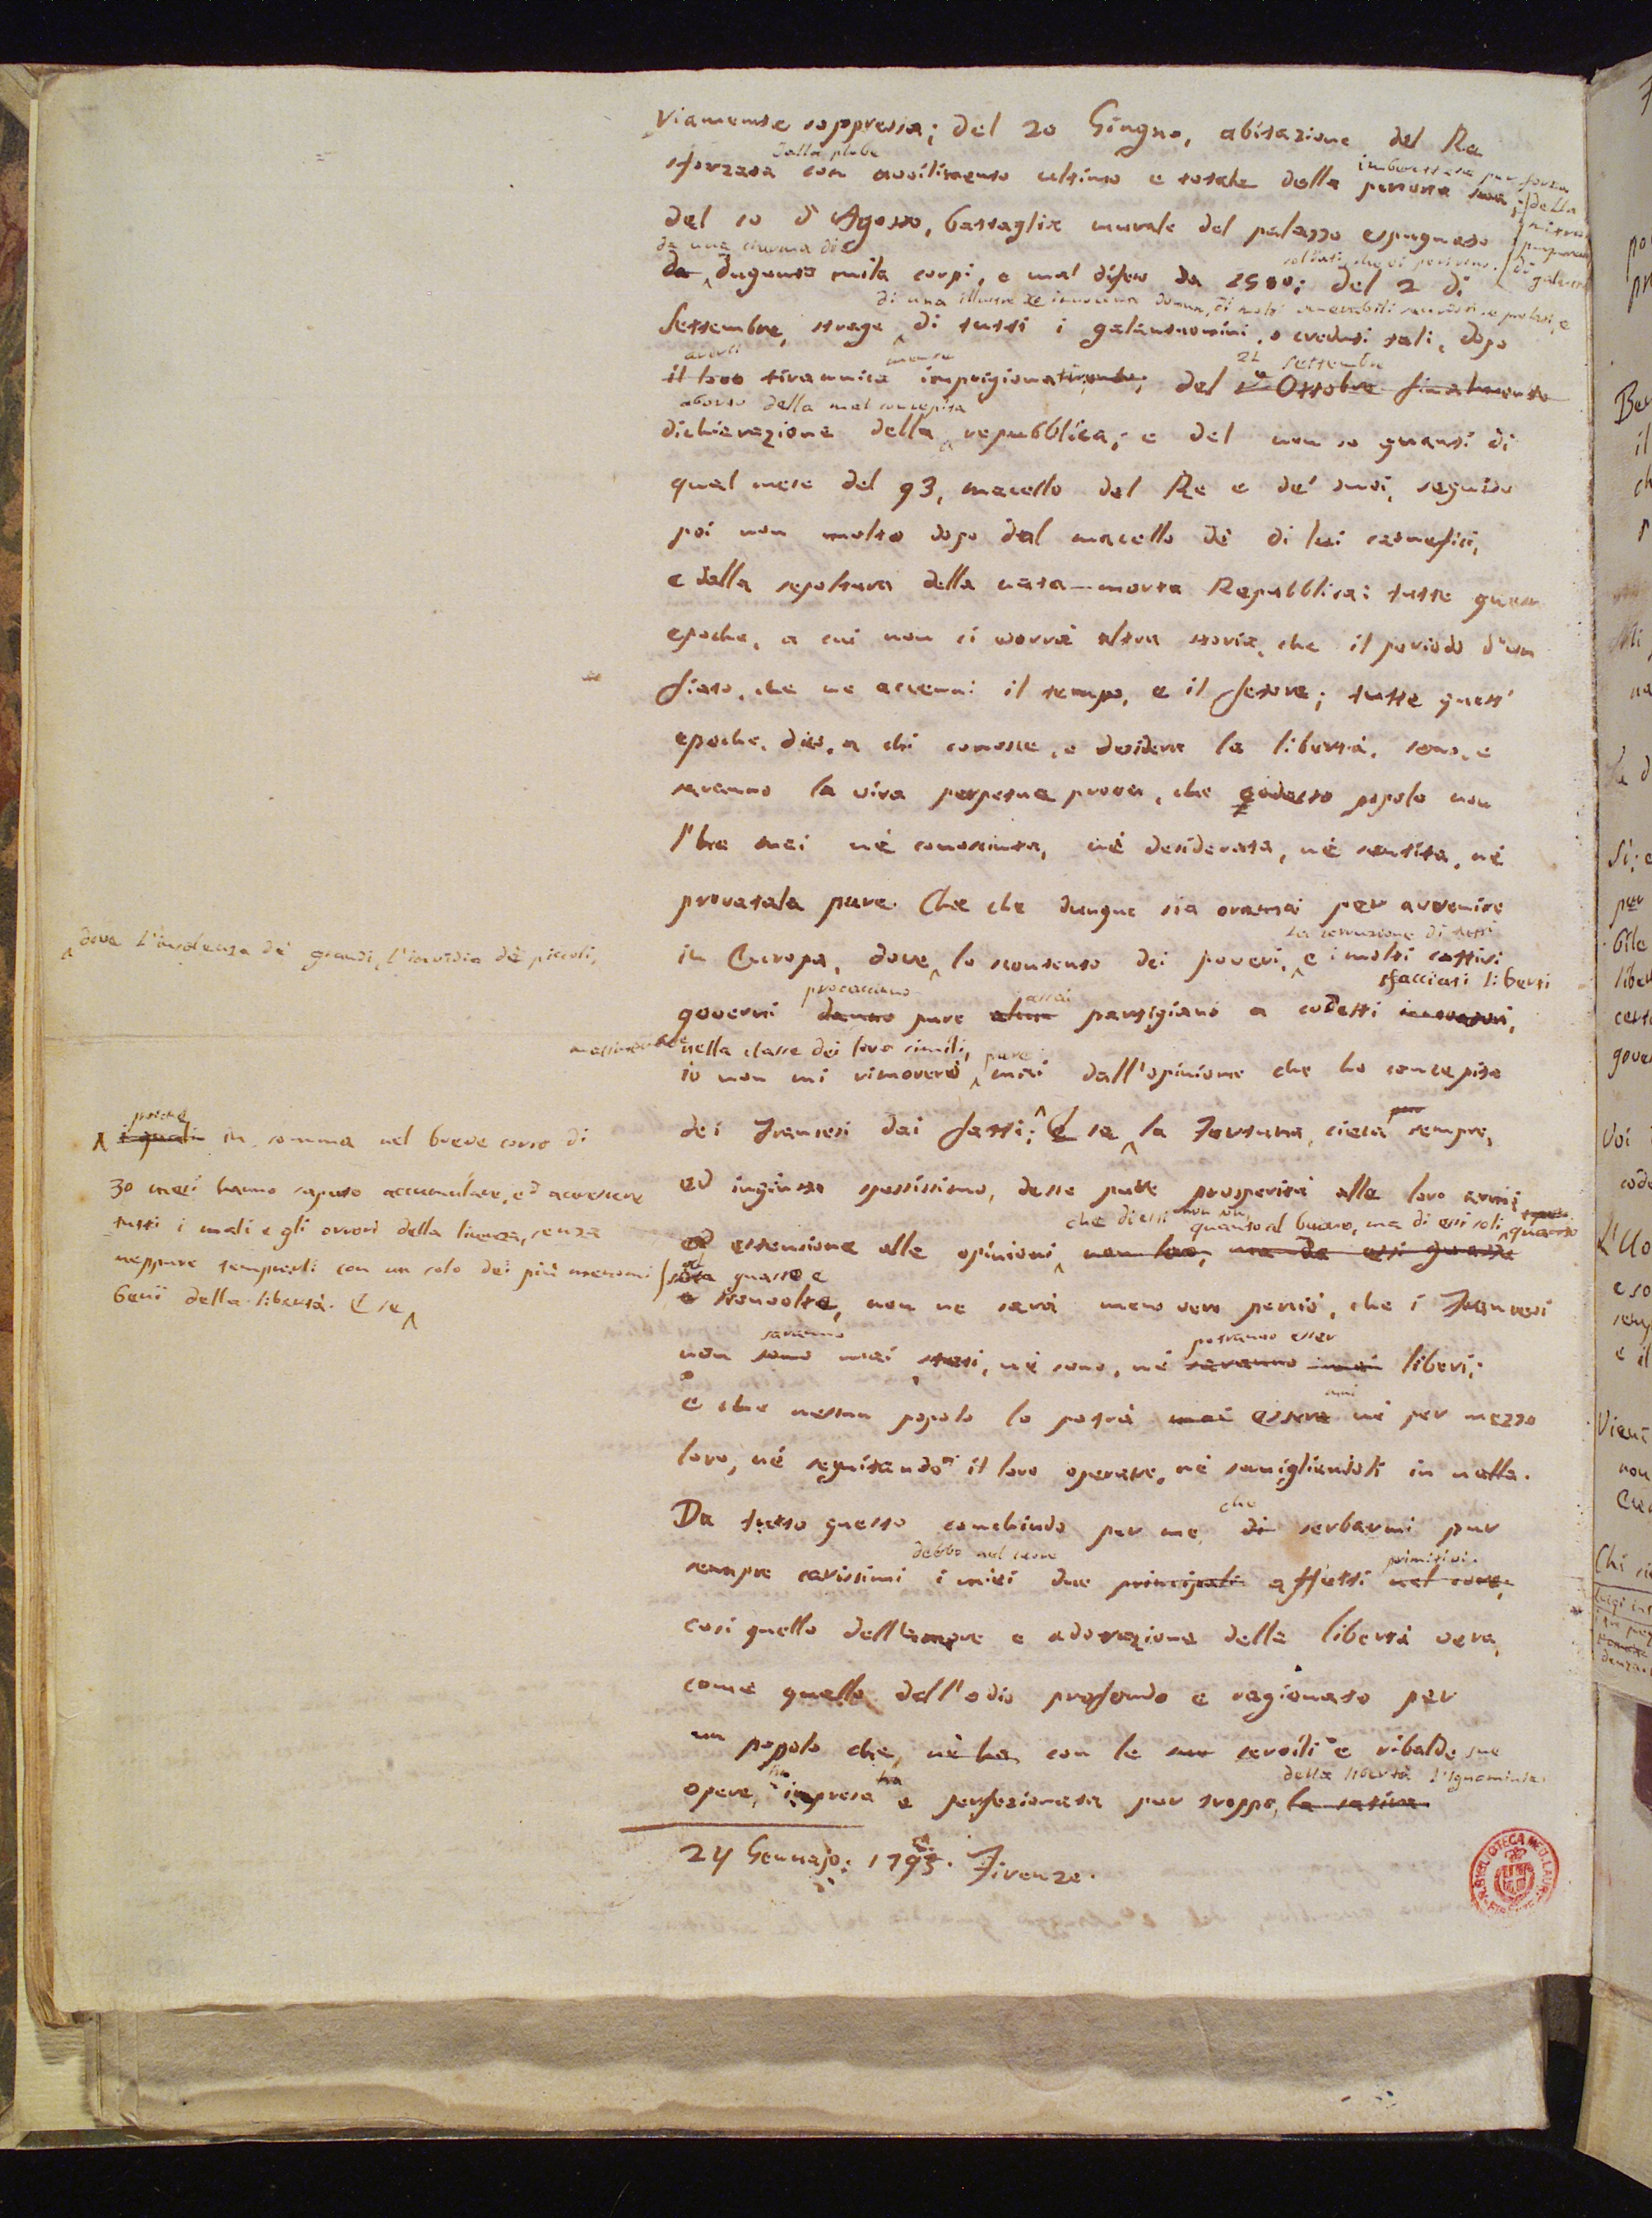 viamente soppressa; del 20 Giugno, abitazione del Re
dalla plebe
imberrettata per forza
sforzata con avvilimento ultimo e totale della persona sua;
della
del 10 d'Agosto, battaglia murale del palazzo espugnato
da una ciurma di
soldati, che vi perirono.
da dugento mila corpi, e mal difeso da 1500; del 2 di
di una illustre innocente donna, di molti venerabili sacerdoti e prelati, e
Settembre, strage di tutti i galantuomini, o creduti tali, dopo
averli
mente
21 Settembre
il loro tirannica imprigionati; del Ottobre finalmente
aborto della mal concepita
dichiarazione della repubblica; e del non so quanti di
qual mese del 93, macello del Re e de' suoi, seguito
poi non molto dopo dal macello de' di lui carnefici,
e dalla sepoltura della nata-morta Repubblica: tutte queste
epoche, a cui non ci vorrà altra storia, che il periodo d'un
fiato, che ne accenni il tempo, e il fetore; tutte quest'
epoche, dico, a chi conosce, e desidera la libertà, sono, e
saranno la viva perpetua prova, che codesto popolo non
l'ha mai nè conosciuta, nè desiderata, nè sentita, nè
provatala pure. Che che dunque sia oramai per avvenire
la corruzione di tutti
dove l'insolenza de' grandi, l'invidia de' piccoli,
in Europa, dove lo scontento dei poveri, e i molti cattivi
procacciano
assai
sfacciati liberti
governi danno pure partigiani a codesti
nella classe dei loro simili, pure
io non mi rimoverò mai dall'opinione che ho concepita
dei Francesi dai fatti; E se la Fortuna, cieca pur sempre,
poichè
i quali in somma nel breve corso di
30 mesi hanno saputo accumulare, ed accrescere
tutti i mali e gli orrori della licenza, senza
neppure temperarli con un solo dei più menomi
beni della libertà. E se
ed ingiusta spessissimo, desse pure prosperità alle loro armi,
che di essi non son, quanto al buono, ma di essi soli, quanto
ed estensione alle opinioni, non loro, ma da essi guaste
guasto e
e stravolte, non ne sarà meno vero perciò, che i Francesi
saranno
potranno esser
non sono mai stati, nè sono, nè saranno mai liberi;
mai
e che nessun popolo lo potrà mai essere nè per mezzo
loro, nè seguitando il loro operare, nè somigliandoli in nulla.
che
Da tutto questo conchiudo per me, di serbarmi pur
debbo nel cuore
primitivi
sempre carissimi i miei due principali affetti nel cuore,
così quello dell'amore e adorazione della libertà vera,
come quello dell'odio profondo e ragionato per
un popolo che, nè ha, con le sue servili e ribalde sue
della libertà l'ignominia.
opere, ha impresa e perfezionata pur troppo, la satira
24 Gennajo: 1793. Firenze.